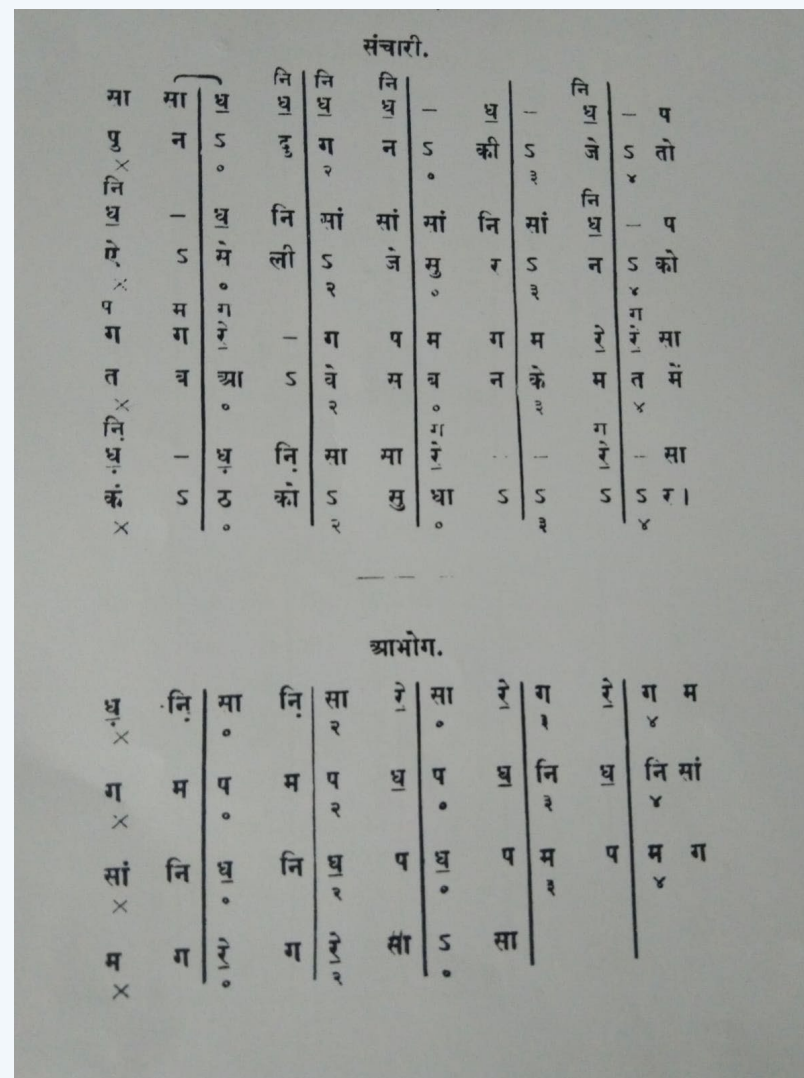 संचारी.
नि नि नि नि
सा सा ध॒ ध॒ ध॒ ध॒ – ध॒ – ध॒ – प
पु न ऽ दु ग न ऽ की ऽ जे ऽ तो
× ० २ ० ३ ४
नि नि
ध॒ – ध॒ नि सां सां सां नि सां ध॒ – प
ऐ ऽ मे ली ऽ जे सु र ऽ न ऽ को
× ० २ ० ३ ४
प म ग ग
ग ग रे॒ – ग प म ग म रे॒ रे॒ सा
त ब आ ऽ वे स ब न के म त में
× ० २ ० ३ ४
नि़ ग ग
ध़॒ – ध़॒ नि़ सा सा रे॒ – – रे॒ – सा
कं ऽ ठ को ऽ सु धा ऽ ऽ ऽ ऽ र।
× ० २ ० ३ ४
आभोग.
ध़॒ नि़ सा नि़ सा रे॒ सा रे॒ ग रे॒ ग म
× ० २ ० ३ ४
ग म प म प ध॒ प ध॒ नि ध॒ नि सां
× ० २ ० ३ ४
सां नि ध॒ नि ध॒ प ध॒ प म प म ग
× ० २ ० ३ ४
म ग रे॒ ग रे॒ सा ऽ सा
× ० २ ०